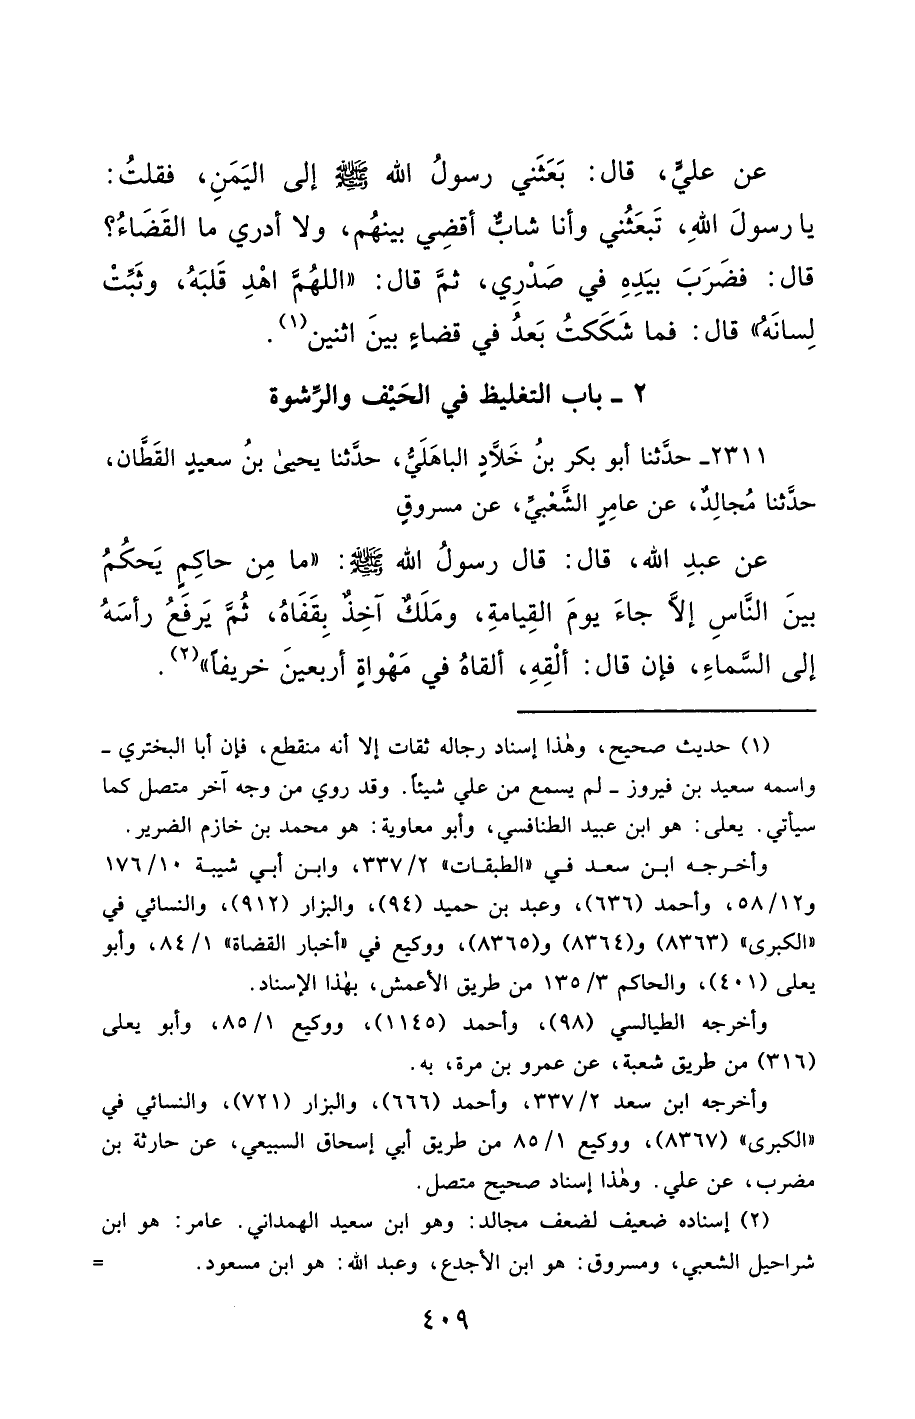 عن عليٍّ، قال: بَعَثَني رسولُ الله ﷺ إلى اليَمَنِ، فقلتُ:
يا رسولَ اللهِ، تَبعَثُني وأنا شابٌّ أقضِي بينهُم، ولا أدري ما القَضَاءُ؟
قال: فضَرَبَ بيَدِهِ في صَدْرِي، ثمَّ قال: «اللهُمَّ اهْدِ قَلبَهُ، وثَبِّتْ
لِسانَهُ» قال: فما شَكَكتُ بَعدُ في قضاءٍ بينَ اثنين(١).
٢ ـ باب التغليظ في الحَيْف والرِّشوة
٢٣١١ـ حدَّثنا أبو بكر بنُ خَلَّادٍ الباهَليُّ، حدَّثنا يحيىٰ بنُ سعيدٍ القَطَّان،
حدَّثنا مُجالِدٌ، عن عامِرٍ الشَّعْبيِّ، عن مسروقٍ
عن عبدِ الله، قال: قال رسولُ الله ﷺ: «ما مِن حاكِمٍ يَحكُمُ
بينَ النَّاسِ إلاَّ جاءَ يومَ القِيامةِ، ومَلَكٌ آخِذٌ بِقَفَاهُ، ثُمَّ يَرفَعُ رأسَهُ
إلى السَّماءِ، فإن قال: ألْقِهِ، ألقاهُ في مَهْواةٍ أربعينَ خريفاً»(٢).
(١) حديث صحيح، وهٰذا إسناد رجاله ثقات إلا أنه منقطع، فإن أبا البختري ـ
واسمه سعيد بن فيروز ـ لم يسمع من علي شيئاً. وقد روي من وجه آخر متصل كما
سيأتي. يعلى: هو ابن عبيد الطنافسي، وأبو معاوية: هو محمد بن خازم الضرير.
وأخرجه ابن سعد في «الطبقات» ٣٣٧/٢، وابن أبي شيبة ١٧٦/١٠
و٥٨/١٢، وأحمد (٦٣٦)، وعبد بن حميد (٩٤)، والبزار (٩١٢)، والنسائي في
«الكبرى» (٨٣٦٣) و(٨٣٦٤) و(٨٣٦٥)، ووكيع في «أخبار القضاة» ٨٤/١، وأبو
يعلى (٤٠١)، والحاكم ١٣٥/٣ من طريق الأعمش، بهٰذا الإسناد.
وأخرجه الطيالسي (٩٨)، وأحمد (١١٤٥)، ووكيع ٨٥/١، وأبو يعلى
(٣١٦) من طريق شعبة، عن عمرو بن مرة، به.
وأخرجه ابن سعد ٣٣٧/٢، وأحمد (٦٦٦)، والبزار (٧٢١)، والنسائي في
«الكبرى» (٨٣٦٧)، ووكيع ٨٥/١ من طريق أبي إسحاق السبيعي، عن حارثة بن
مضرب، عن علي. وهٰذا إسناد صحيح متصل.
(٢) إسناده ضعيف لضعف مجالد: وهو ابن سعيد الهمداني. عامر: هو ابن
شراحيل الشعبي، ومسروق: هو ابن الأجدع، وعبد الله: هو ابن مسعود. =
٤٠٩